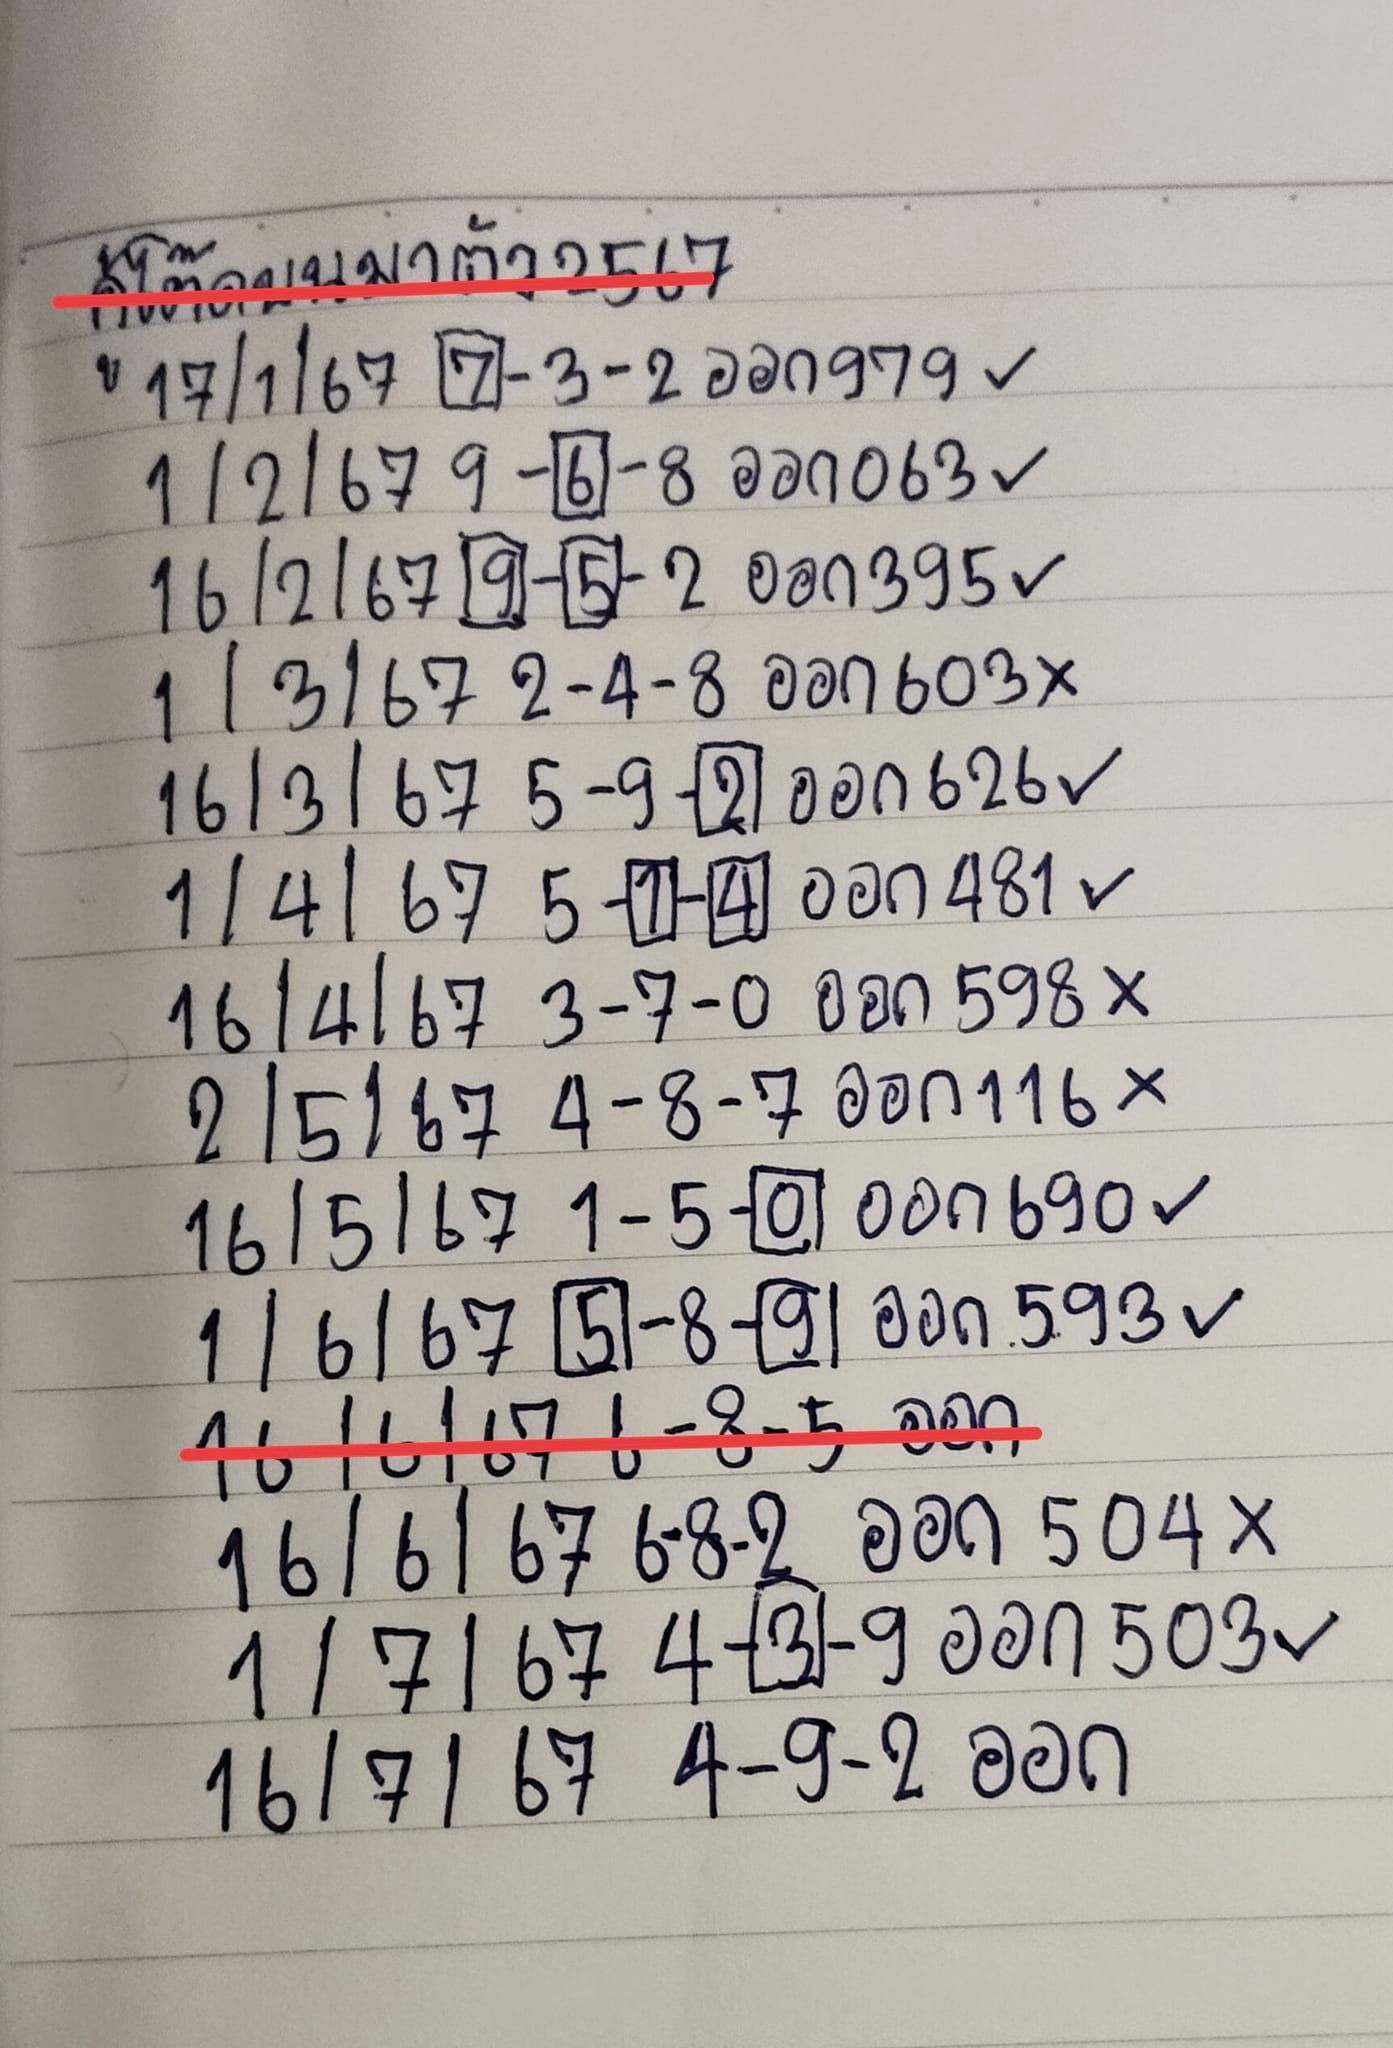 2567
17/1/67 7-3-2 ออก979✓
1/2/67 9-6-8 ออก063✓
16/2/67 9-5-2 ออก395✓
1/3/67 2-4-8 ออก603×
16/3/67 5-9-2 ออก626✓
1/4/67 5-1-4 ออก481✓
16/4/67 3-7-0 ออก598×
2/5/67 4-8-7 ออก116×
16/5/67 1-5-0 ออก690✓
1/6/67 5-8-9 ออก593✓
16/6/67 6-8-5 ออก
16/6/67 6-8-2 ออก 504×
1/7/67 4-3-9 ออก503✓
16/7/67 4-9-2 ออก